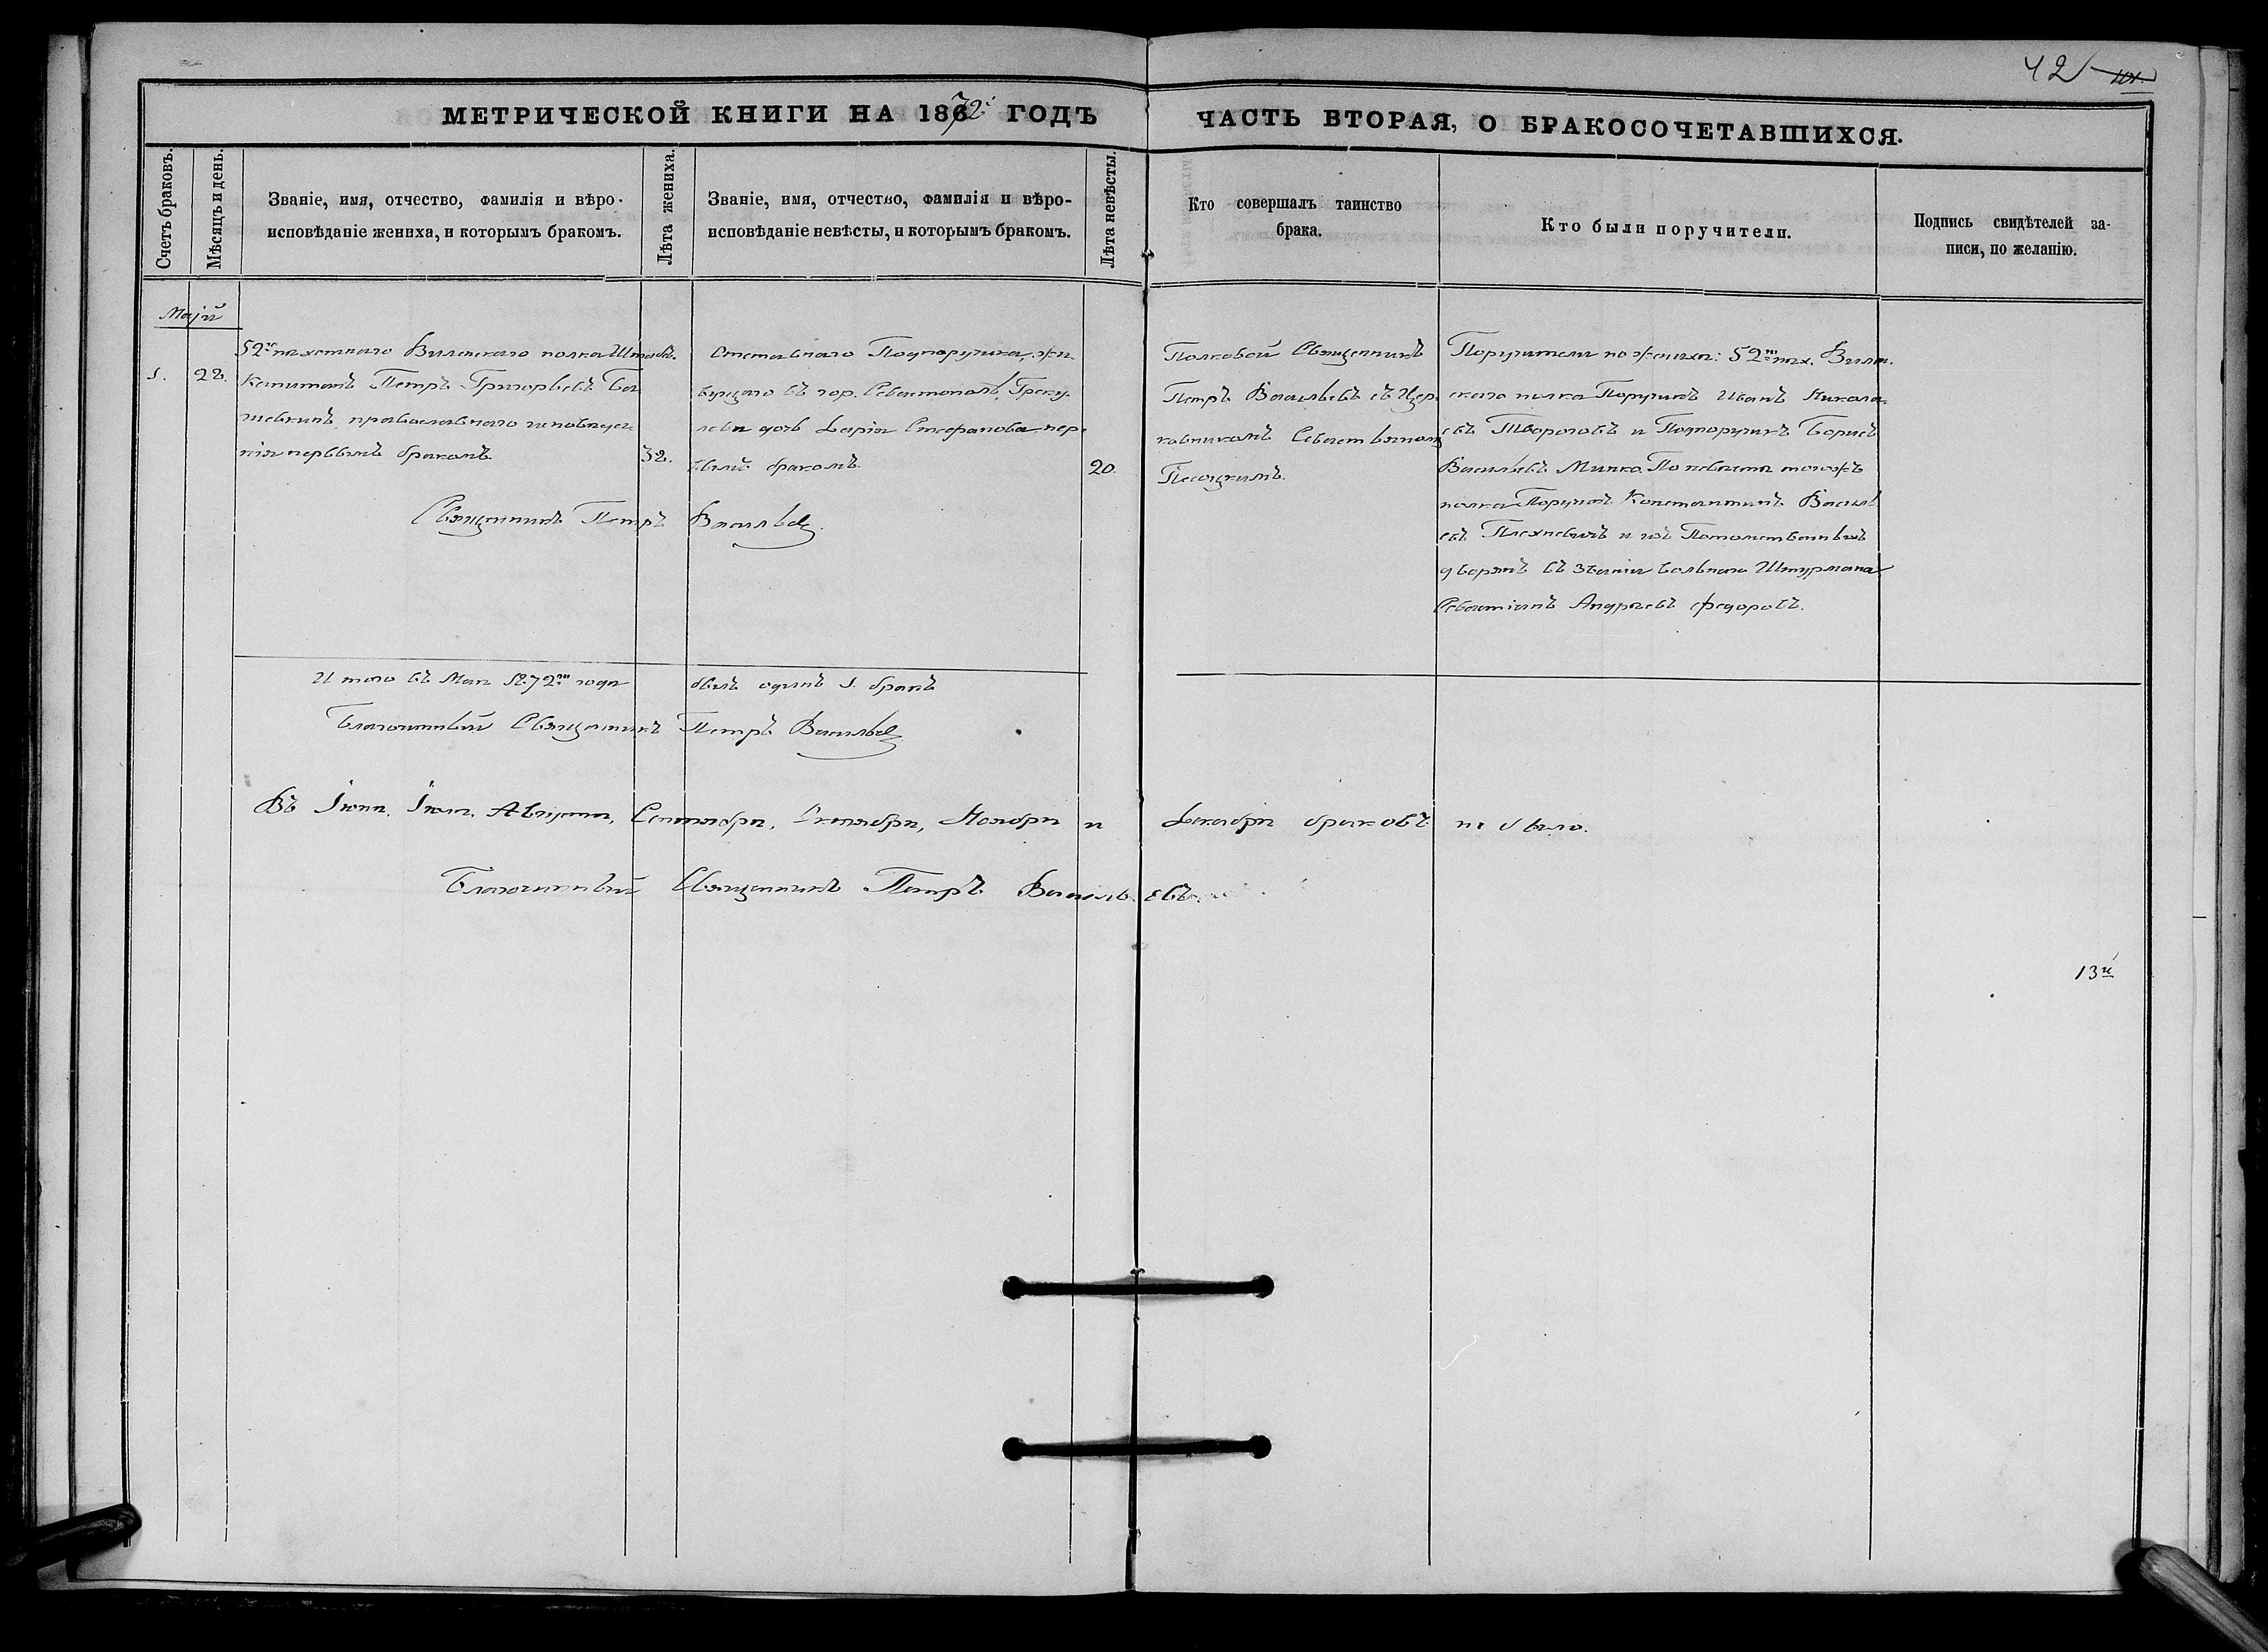 42
МЕТРИЧЕСКОЙ КНИГИ НА 1872 ГОДЪ
ЧАСТЬ ВТОРАЯ, О БРАКОСОЧЕТАВШИХСЯ.
Счетъ браковъ.
Мѣсяцъ и день.
Званіе, имя, отчество, фамилія и вѣро-
исповѣданіе жениха, и которымъ бракомъ.
Лѣта жениха.
Званіе, имя, отчество, фамилія и вѣро-
исповѣданіе невѣсты, и которымъ бракомъ.
Лѣта невѣсты.
Кто совершалъ таинство
брака.
Кто были поручители.
Подпись свидѣтелей за-
писи, по желанію.
Маій
1.
28.
52го пѣхотнаго Виленскаго полка Штабсъ-
Капитанъ Петръ Григорьевъ
православнаго исповѣда-
нія первымъ бракомъ.
32.
Отставнаго Подпоручика, жи-
вущаго въ гор. Севастополѣ,
дочь Дарія Стефанова пер-
вымъ бракомъ.
20.
Полковой Священникъ
Петръ Васильевъ съ Цер-
ковникомъ
Песоцкимъ.
Поручители по женихѣ: 52го пѣх. Вилен-
скаго полка Поручикъ Иванъ Никола-
евъ Твороговъ и Подпоручикъ Борисъ
Васильевъ Минко. По невѣстѣ тогожъ
полка Поручикъ Константинъ Василь-
евъ и изъ Потомственныхъ
дворянъ въ званіи вольнаго Штурмана
Севастіанъ Андреевъ Федоровъ.
Священникъ Петръ Васильевъ
Итого въ Маѣ 1872го года былъ одинъ 1. бракъ
Благочинный Священникъ Петръ Васильевъ
Въ Іюнѣ, Іюлѣ, Августѣ, Сентябрѣ, Октябрѣ, Ноябрѣ и Декабрѣ браковъ не было.
Благочинный Священникъ Петръ Васильевъ.
13й